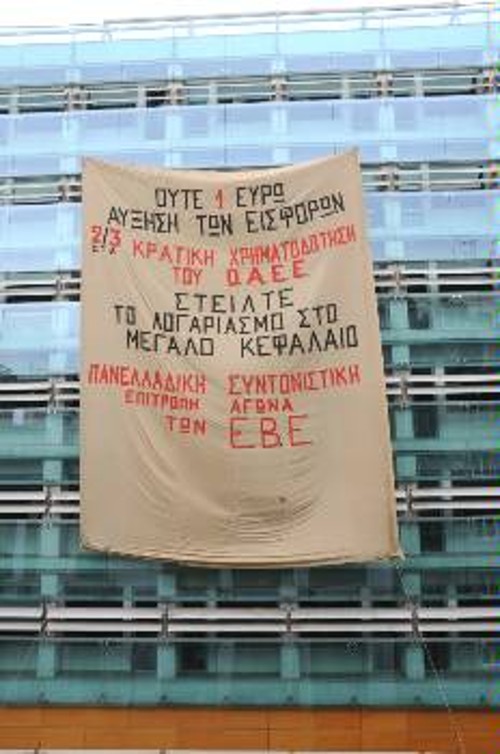 ΟΥΤΕ 1 ΕΥΡΩ
ΑΥΞΗΣΗ ΤΩΝ ΕΙΣΦΟΡΩΝ
2/3 ΚΡΑΤΙΚΗ ΧΡΗΜΑΤΟΔΟΤΗΣΗ
ΤΟΥ Ο.Α.Ε.Ε
ΣΤΕΙΛΤΕ
ΤΟ ΛΟΓΑΡΙΑΣΜΟ ΣΤΟ
ΜΕΓΑΛΟ ΚΕΦΑΛΑΙΟ
ΠΑΝΕΛΛΑΔΙΚΗ ΣΥΝΤΟΝΙΣΤΙΚΗ
ΕΠΙΤΡΟΠΗ ΑΓΩΝΑ
ΤΩΝ Ε.Β.Ε